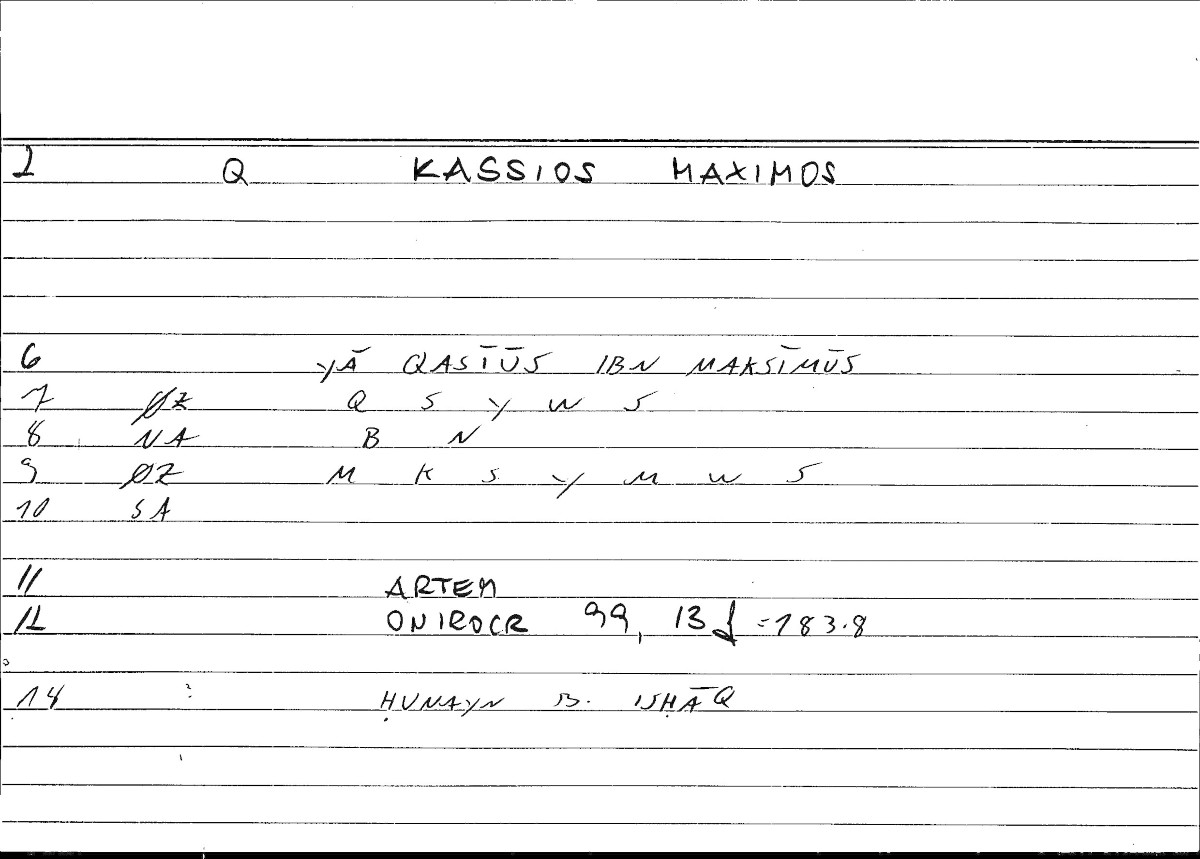 1 Q KASSIOS MAXIMOS
6 YĀ QASĪŪS IBN MAKSĪMŪS
7 ØZ Q S Y W S
8 NA B N
9 ØZ M K S Y M W S
10 SA
11 ARTEM
12 ONIROCR 99, 13f = 183.8
14 ḤUNAYN B. ISḤĀQ